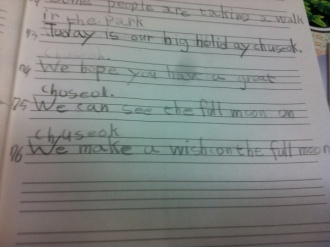 Some people are taking a walk
in the park
73 Today is our big holiday chuseok.
74 We hope you have a great
chuseok.
75 We can see the full moon on
chuseok
76 We make a wish on the full moon